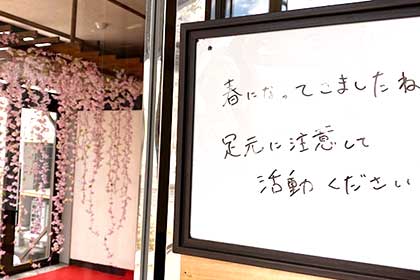 春になってきましたね
足元に注意して
活動ください